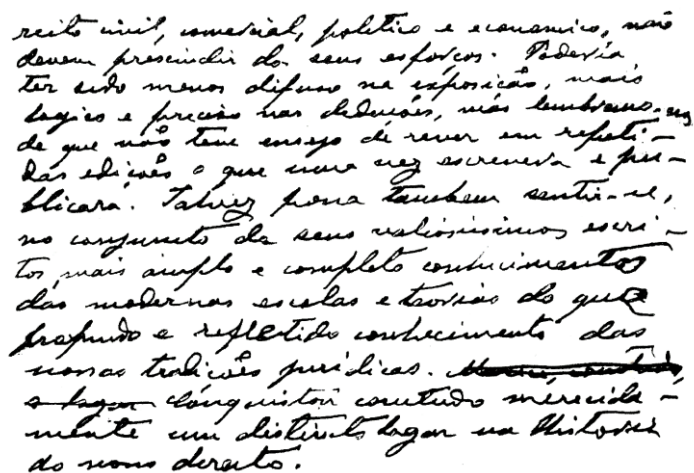 reito civil, comercial, politico e economico, não
devem prescindir de seus esforços. Poderia
ter sido menos difuso na exposição, mais
logico e preciso nas deduções, mas lembramo-nos
de que não teve ensejo de rever em repeti-
das edições o que uma vez escrevera e pu-
blicara. Talvez possa tambem sentir-se,
no conjunto de seus valiosissimos escri-
tos, mais amplo e completo conhecimento
das modernas escolas e teorias do que
profundo e refletido conhecimento das
nossas tradições juridicas.
o lugar Conquistou contudo merecida-
mente um distinto lugar na Historia
do nosso direito.